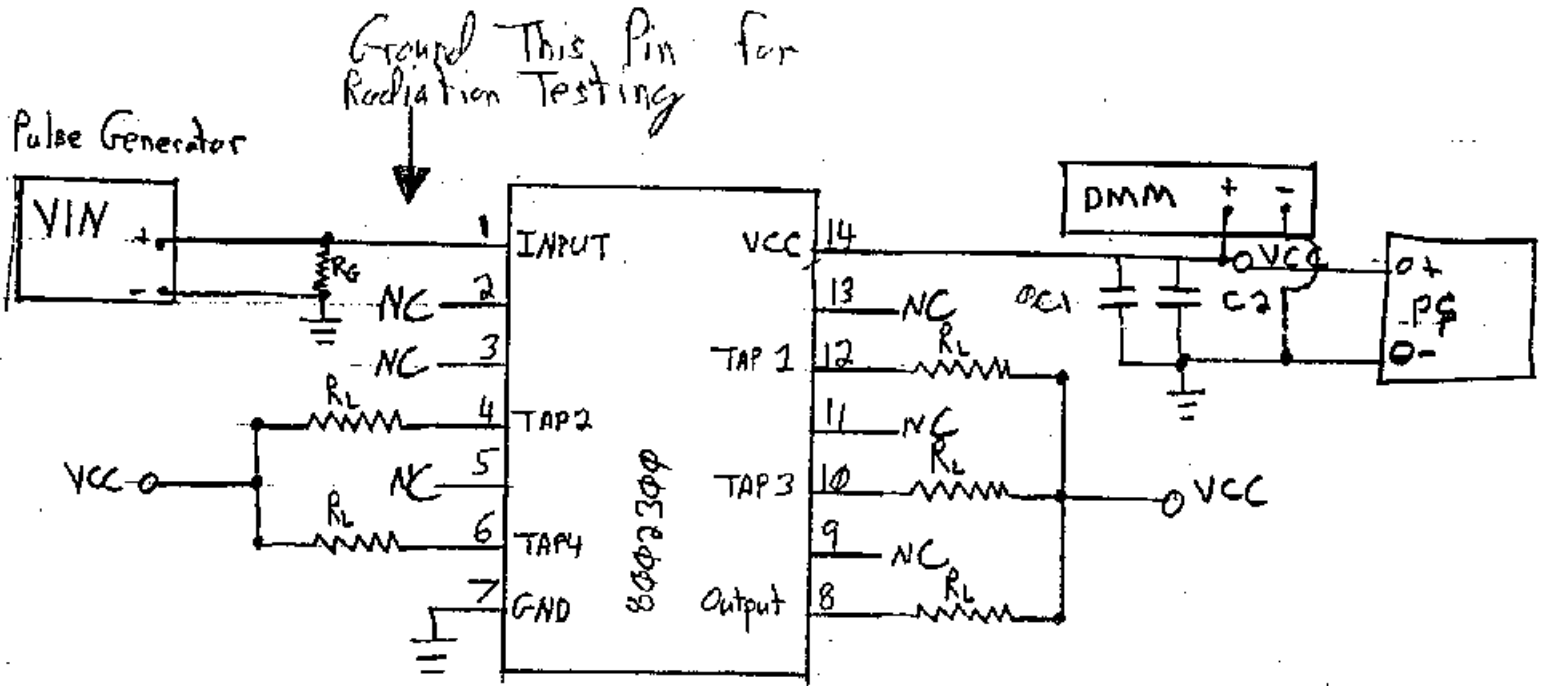 Ground This Pin for
Radiation Testing
Pulse Generator
VIN
+
-
RG
1
INPUT
NC
2
NC
3
RL
4
TAP2
VCC
NC
5
RL
6
TAP4
7
GND
8002300
VCC
14
13
NC
TAP 1
12
RL
11
NC
TAP 3
10
RL
VCC
9
NC
Output
8
RL
DMM
+
-
VCC
C1
C2
+
PS
-